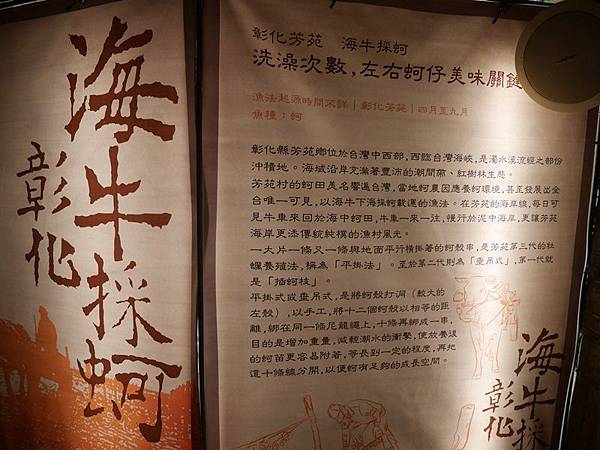 海牛採蚵
彰化
彰化芳苑　海牛採蚵
洗澡次數，左右蚵仔美味關鍵
漁法起源時間不詳｜彰化芳苑｜四月至九月
魚種：蚵
彰化縣芳苑鄉位於台灣中西部，西臨台灣海峽，是濁水溪流經之部份
沖積地。海域沿岸充滿著豐沛的潮間帶、紅樹林生態。
芳苑村的蚵田美名響遍台灣，當地蚵農因應養蚵環境，甚至發展出全
台唯一可見，以海牛下海採蚵載運的漁法。在芳苑的海岸線，每日可
見牛車來回於海中蚵田，牛車一來一往，慢行於泥中海岸，更讓芳苑
海岸更添傳統純樸的漁村風光。
一大片一條又一條與地面平行橫掛著的蚵殼串，是芳苑第三代的牡
蠣養殖法，稱為「平掛法」。至於第二代則為「垂吊式」，第一代就
是「插蚵枝」。
平掛式或垂吊式，是將蚵殼打洞（較大的
左殼），以手工，將十二個蚵殼以相等的距
離，綁在同一條尼龍繩上，十條再綁成一串，
目的是增加重量，減輕潮水的衝擊，使放養後
的蚵苗更容易附著，等長到一定的程度，再把
這十條線分開，以便蚵有足夠的成長空間。
海牛採蚵
彰化